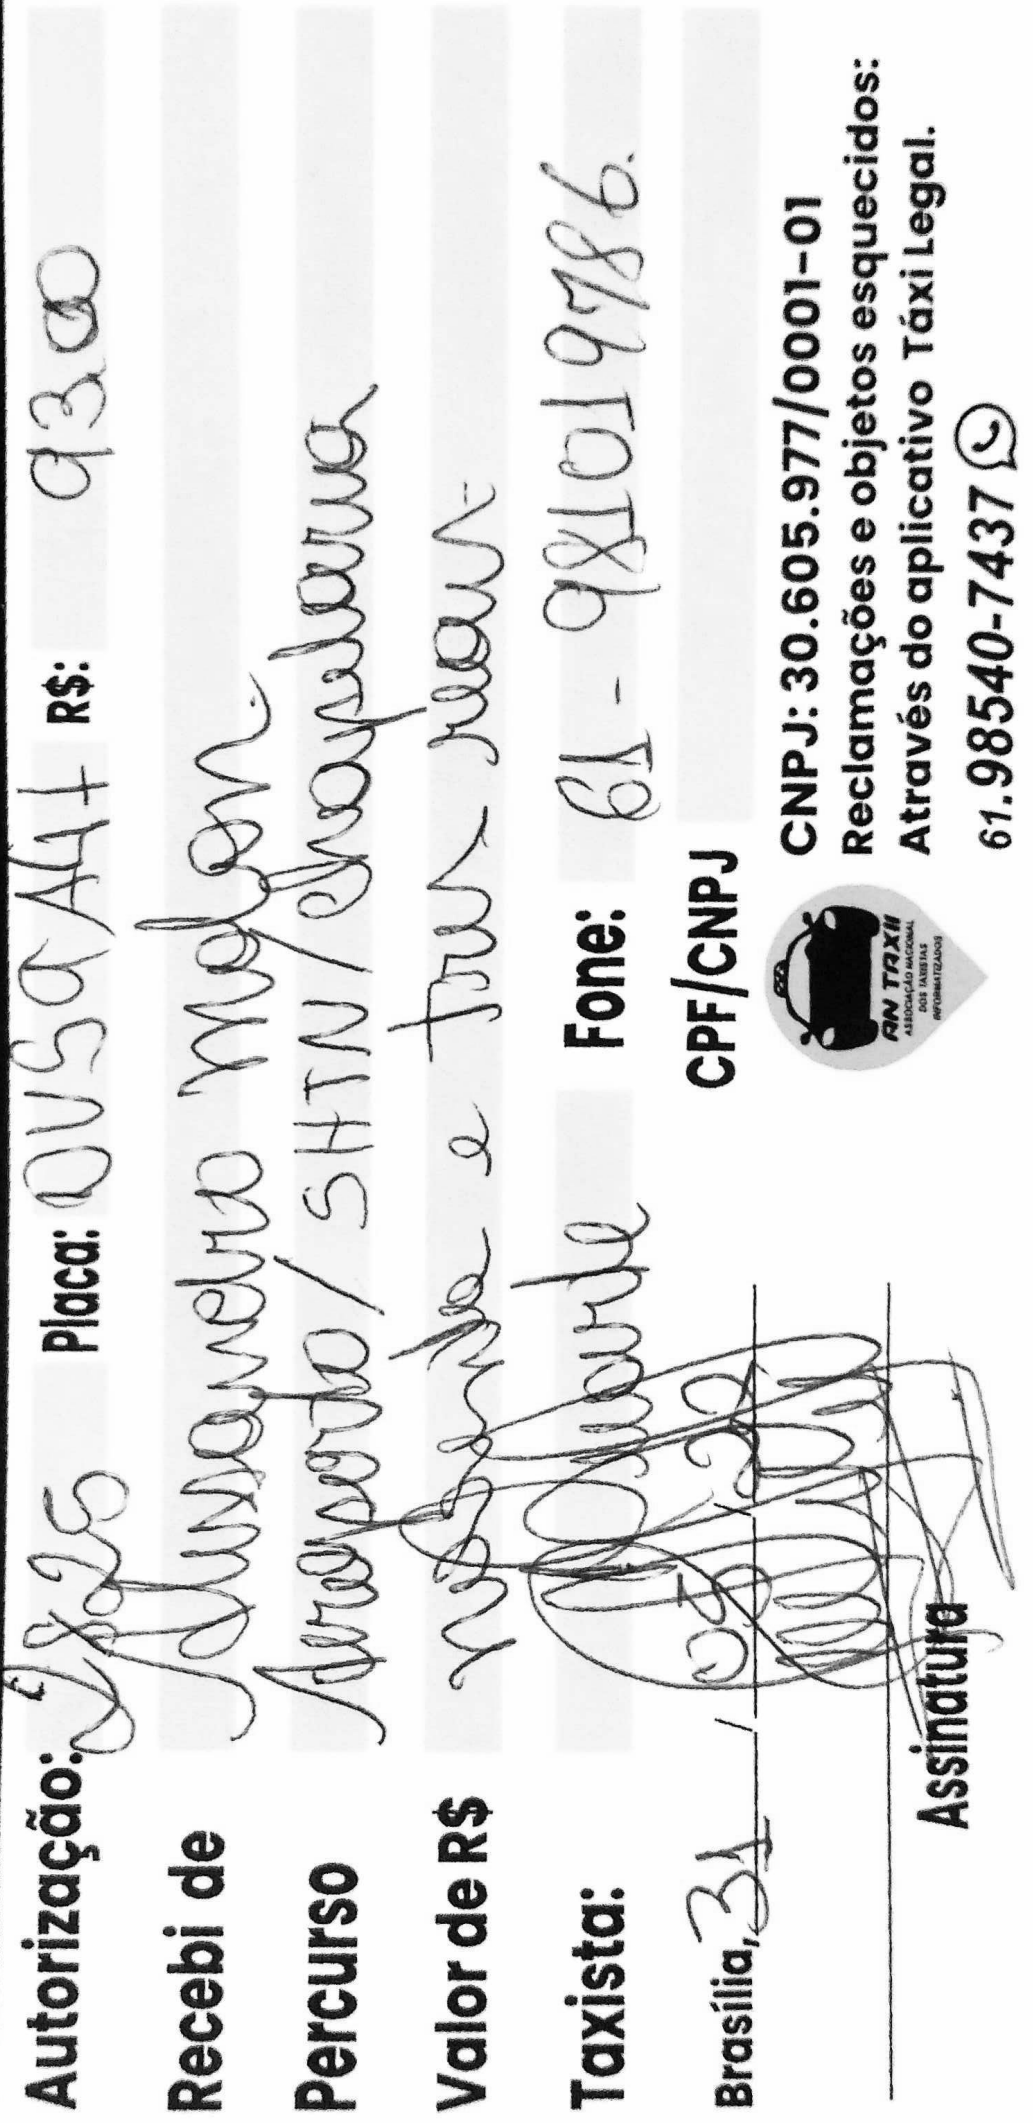 Autorização: 1825 Placa: OVS9A44 R$: 93.00
Recebi de Alessandro Molon.
Percurso Aeroporto / SHTN / Chapelaria
Valor de R$ noventa e três reais
Taxista: Duarte Fone: 61 - 981019786.
CPF/CNPJ
Brasília, 31 / 03 / 22
Assinatura
AN TAXII
ASSOCIAÇÃO NACIONAL
DOS TAXISTAS
INFORMATIZADOS
CNPJ: 30.605.977/0001-01
Reclamações e objetos esquecidos:
Através do aplicativo Táxi Legal.
61.98540-7437